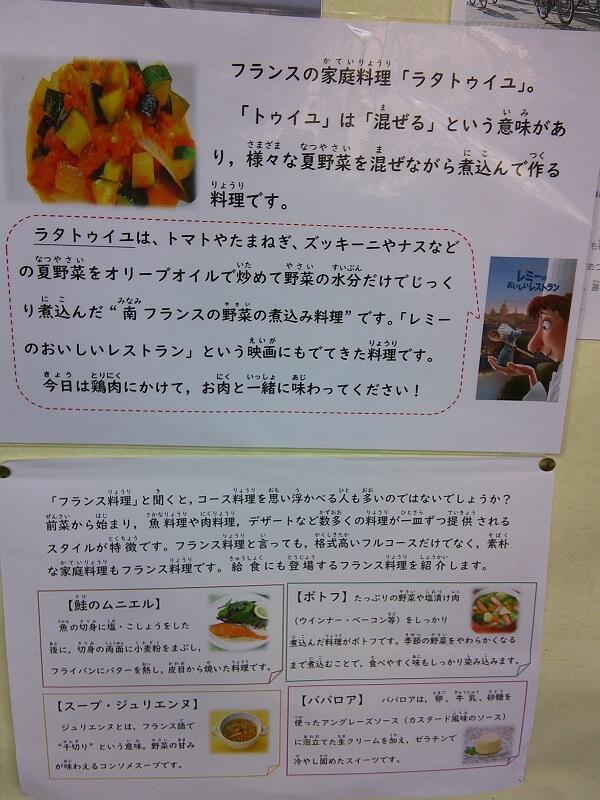 フランスの家庭料理「ラタトゥイユ」。
「トゥイユ」は「混ぜる」という意味があ
り，様々な夏野菜を混ぜながら煮込んで作る
料理です。
ラタトゥイユは、トマトやたまねぎ、ズッキーニやナスなど
の夏野菜をオリーブオイルで炒めて野菜の水分だけでじっく
り煮込んだ“南フランスの野菜の煮込み料理”です。「レミー
のおいしいレストラン」という映画にもでてきた料理です。
今日は鶏肉にかけて，お肉と一緒に味わってください！
レミーの
おいしいレストラン
「フランス料理」と聞くと，コース料理を思い浮かべる人も多いのではないでしょうか？
前菜から始まり，魚料理や肉料理，デザートなど数多くの料理が一皿ずつ提供される
スタイルが特徴です。フランス料理と言っても，格式高いフルコースだけでなく，素朴
な家庭料理もフランス料理です。給食にも登場するフランス料理を紹介します。
【鮭のムニエル】
魚の切身に塩・こしょうをした
後に，切身の両面に小麦粉をまぶし，
フライパンにバターを熱し，皮目から焼いた料理です。
【ポトフ】たっぷりの野菜や塩漬け肉
（ウインナー・ベーコン等）をしっかり
煮込んだ料理がポトフです。季節の野菜をやわらかくなる
まで煮込むことで，食べやすく味もしっかり染み込みます。
【スープ・ジュリエンヌ】
ジュリエンヌとは，フランス語で
“千切り”という意味。野菜の甘み
が味わえるコンソメスープです。
【ババロア】ババロアは，卵，牛乳，砂糖を
使ったアングレーズソース（カスタード風味のソース）
に泡立てた生クリームを加え，ゼラチンで
冷やし固めたスイーツです。